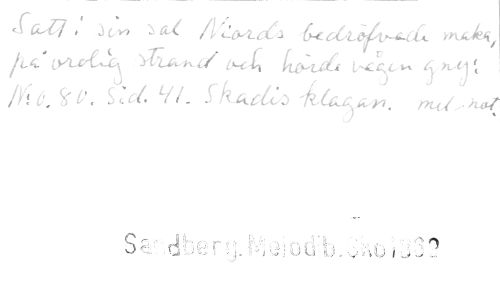 Satt i sin sal Niords bedröfvade maka,
på orolig strand och hörde vågen gny.
No. 80. Sid. 41. Skadis klagan. mel. not.
Sandberg. Melodib.